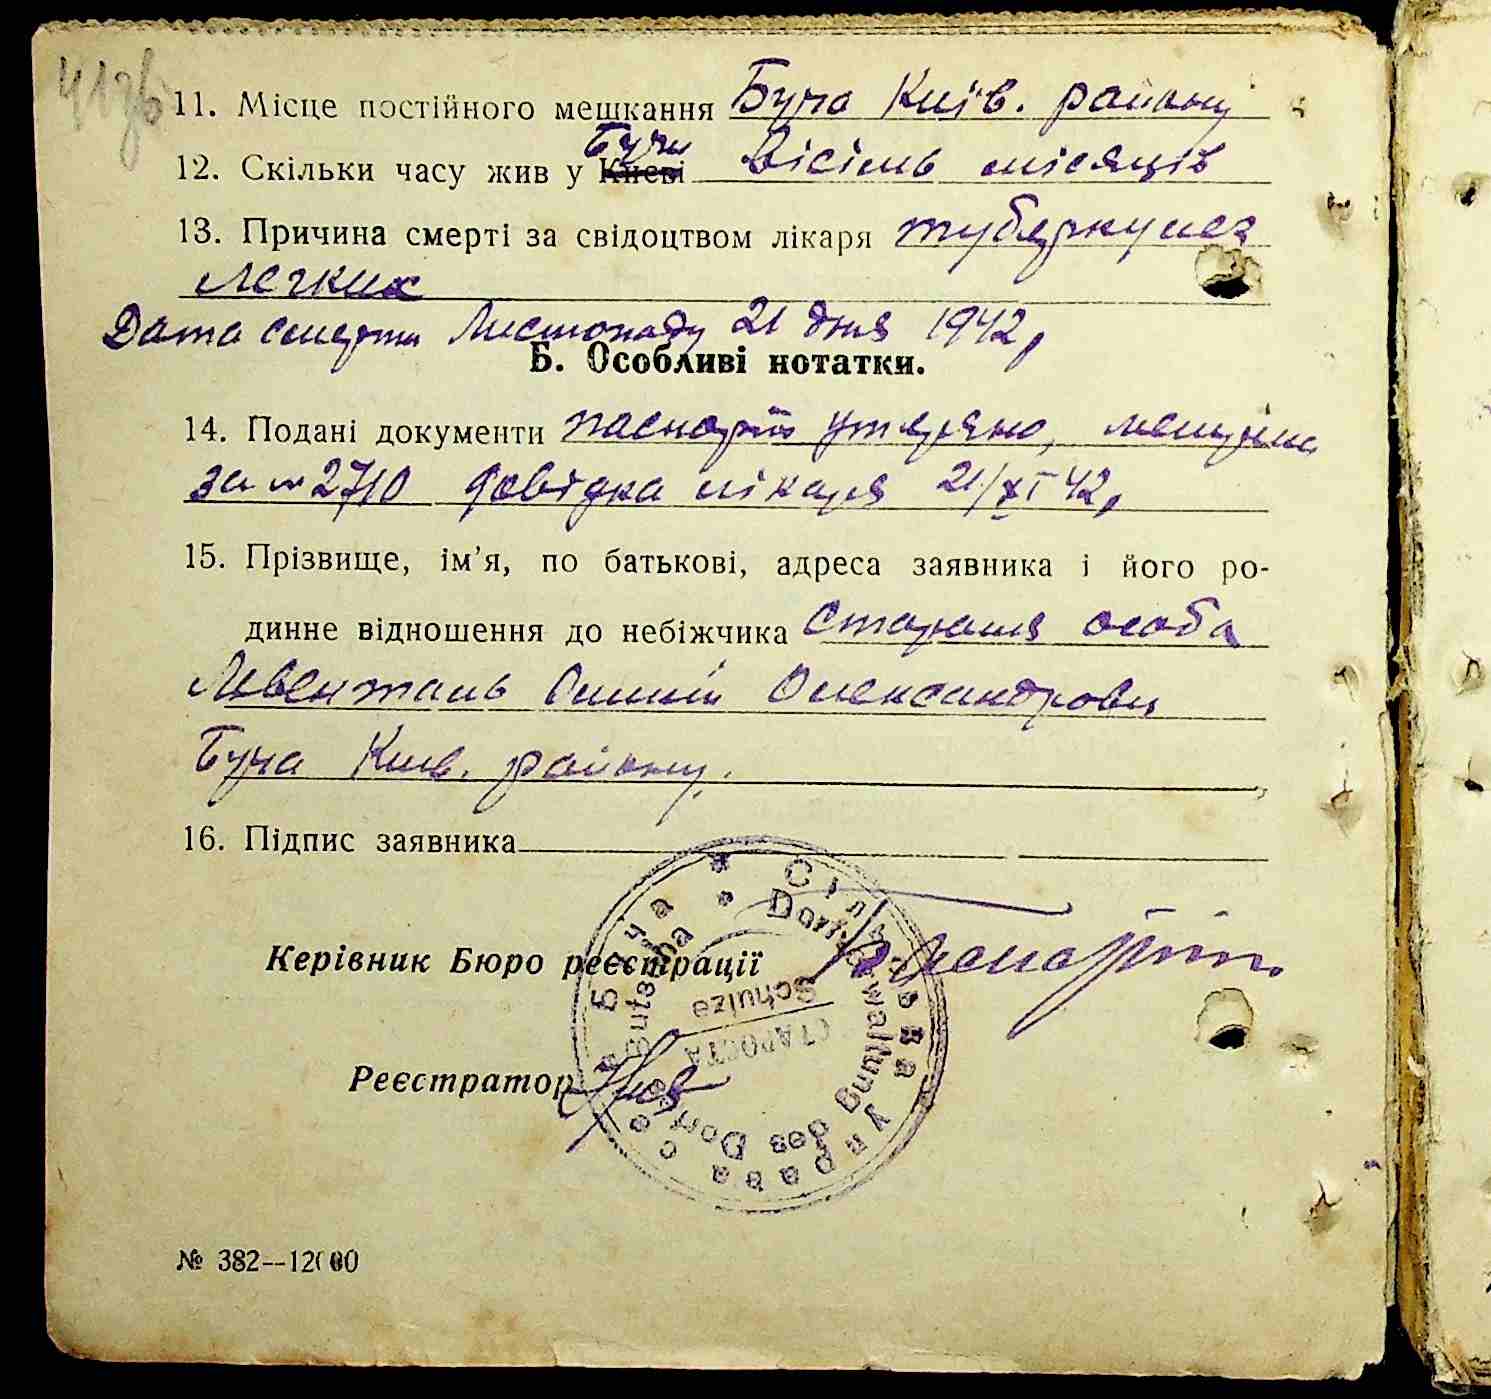 11. Місце постійного мешкання Буча Київ. району
12. Скільки часу жив у Києві Бучи Вісім місяців
13. Причина смерті за свідоцтвом лікаря туберкулез
легких
Дата смерти Листопаду 21 дня 1942,
Б. Особливі нотатки.
14. Подані документи паспорт утеряно,
за № 2710 довідка лікаря 21/XI 42,
15. Прізвище, ім’я, по батькові, адреса заявника і його ро-
динне відношення до небіжчика Стараша особа
Левенталь Олександровн
Буча Київ. району.
16. Підпис заявника
Керівник Бюро реєстрації
Реєстратор
Сільська Управа села Буча
Dorfverwaltung des Dorfes Butscha
Schulze
СТАРОСТА
№ 382--12000